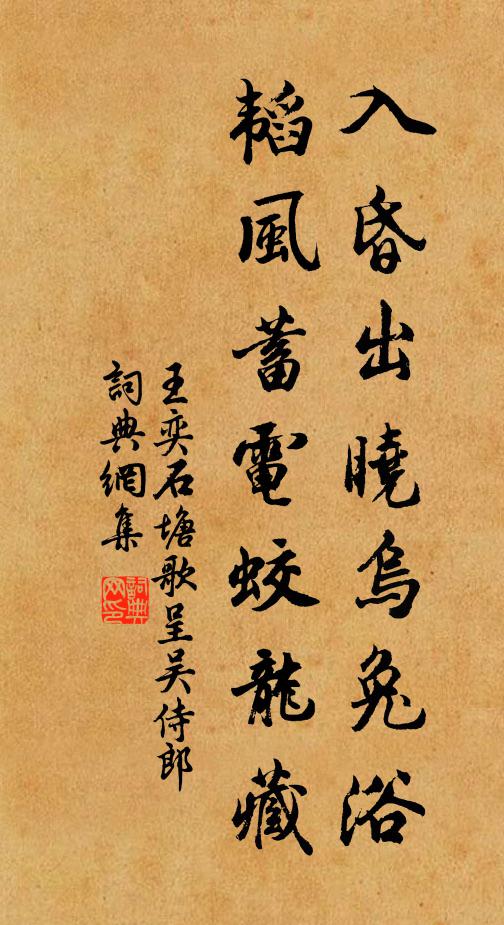 入昏出曉烏兔浴
韜風蓄電蛟龍藏
王奕石塘歌呈吳侍郎
詞典網集
詞典網印